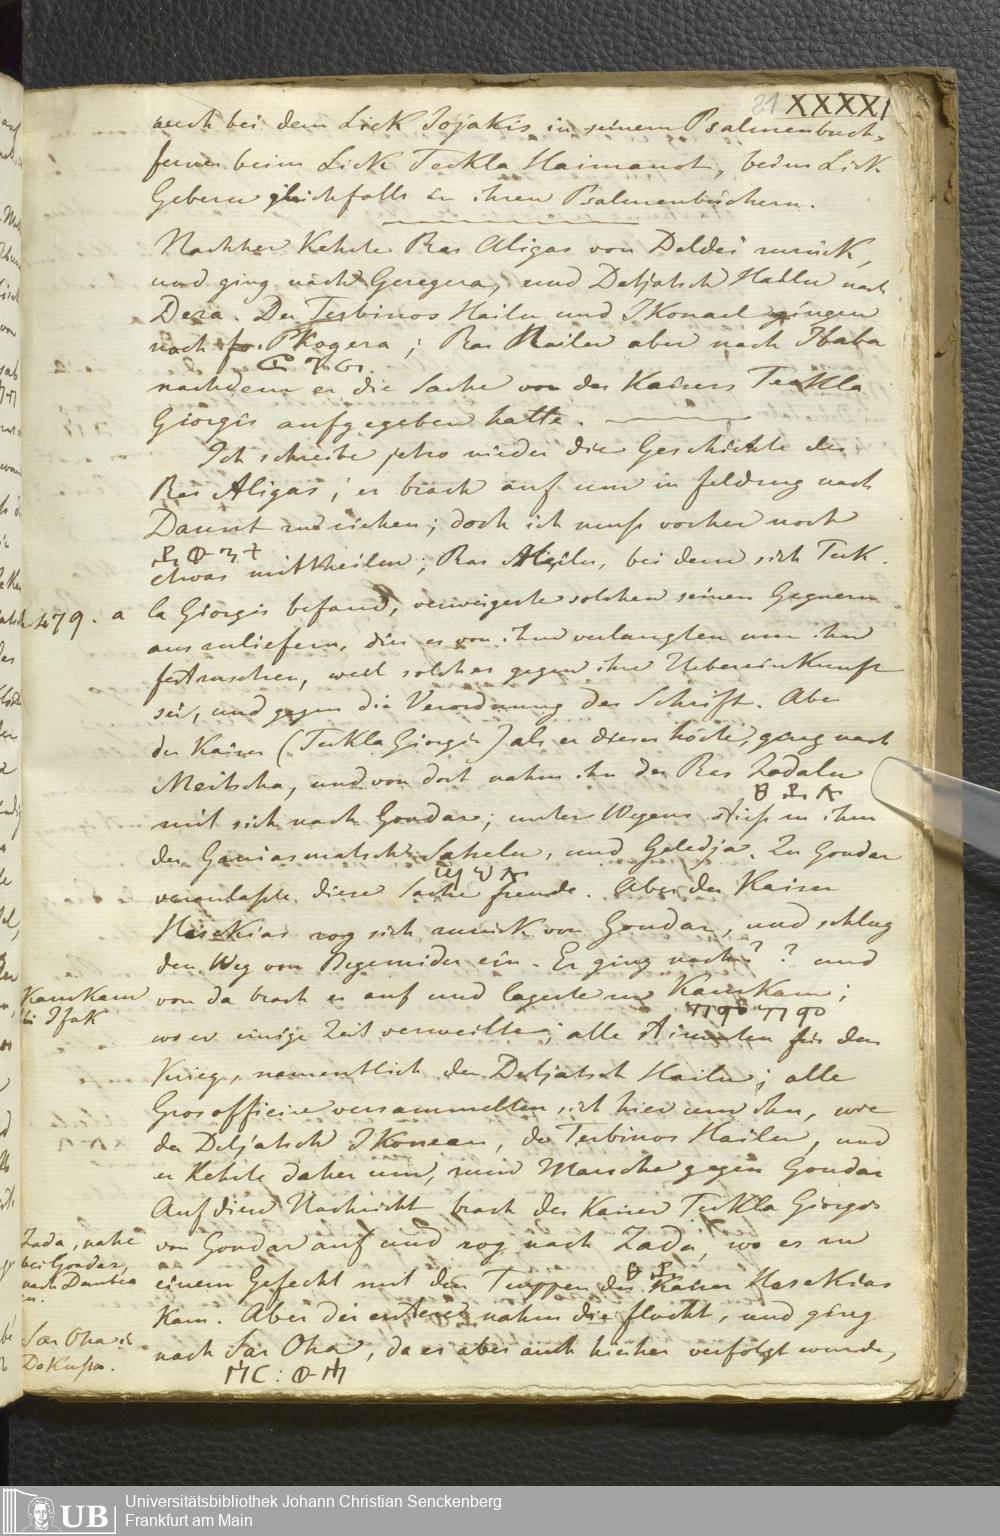 81 XXXXI
auch bei dem Lick Jojakis in seinem Psalmenbuch,
ferner beim Lick Teckla Haimanot, beim Lick
Geberu gleichfalls in ihren Psalmenbüchern.
Nachher kehrte Ras Aligas von Deldei zurück,
und ging nach Geregera, und Detjatsch Hailu nach
Dera. Der Terbinos Hailu und Ikonael gingen
nach Pkogera; Ras Hailu aber nach Ibaba
nachdem er die Sache von des Kaisers Teckla
Giorgis aufgegeben hatte.
Ich schreibe jetzo wieder die Geschichte des
Ras Aligas; er brach auf um in feldzug nach
Daunt zu ziehen; doch ich muss vorher noch
ዳውንት
etwas mittheilen; Ras Hailu, bei dem sich Teck-
479. a
la Giorgis befand, verweigerte solchen seinen Gegnern
auszuliefern, die es von ihm verlangten um ihn
festzusetzen, weil solches gegen ihre Uebereinkunft
sei, und gegen die Verordnung der Schrift. Aber
der Kaiser (Teckla Giorgis) als er dieses hörte, ging nach
Meitscha, und von dort nahm ihn der Ras Zadalu
ፀዳሉ
mit sich nach Gondar; unter Wegens stiess zu ihm
der Ganiasmatsch Sahelu, und Geledja. In Gondar
ሣህሉ
veranlasste diese Sache freude. Aber der Kaiser
Hesekias zog sich zurück von Gondar, und schlug
den Weg von Begemider ein. Er ging nach ? ? und
von da brach er auf und lagerte zu Kamkam;
ከምከም
Kamkam
bei Ifak
wo er einige Zeit verweilte; alle stimmten für den
Krieg, namentlich der Detjatsch Hailu; alle
Grosofficire versammelten sich hier um ihn, wie
der Detjatsch Ikonean, der Terbinos Hailu, und
er kehrte daher um, und Marsche gegen Gondar
Auf diese Nachricht brach der Kaiser Teckla Giorgis
von Gondar auf und zog nach Zada, wo es zu
ፀዳ
Zada, nahe
bei Gondar,
nach Dembea
zu.
einem Gefecht mit den Truppen des Kaiser Hesekias
kam. Aber der erstere nahm die flucht, und ging
nach Sar Oha, da er aber auch hieher verfolgt wurde,
ሣር : ውሃ
Sar Oha in